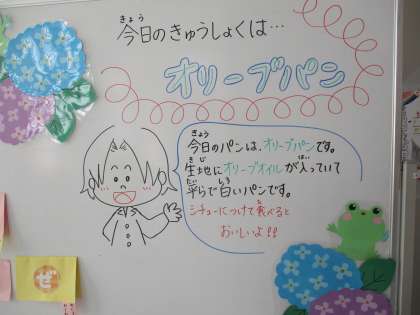 きょう
今日のきゅうしょくは…
オリーブパン
きょう
今日のパンは、オリーブパンです。
きじ はい
生地にオリーブオイルが入っていて
たい しろ
平らで白いパンです。
た
シチューにつけて食べると
おいしいよ!!
ぜ